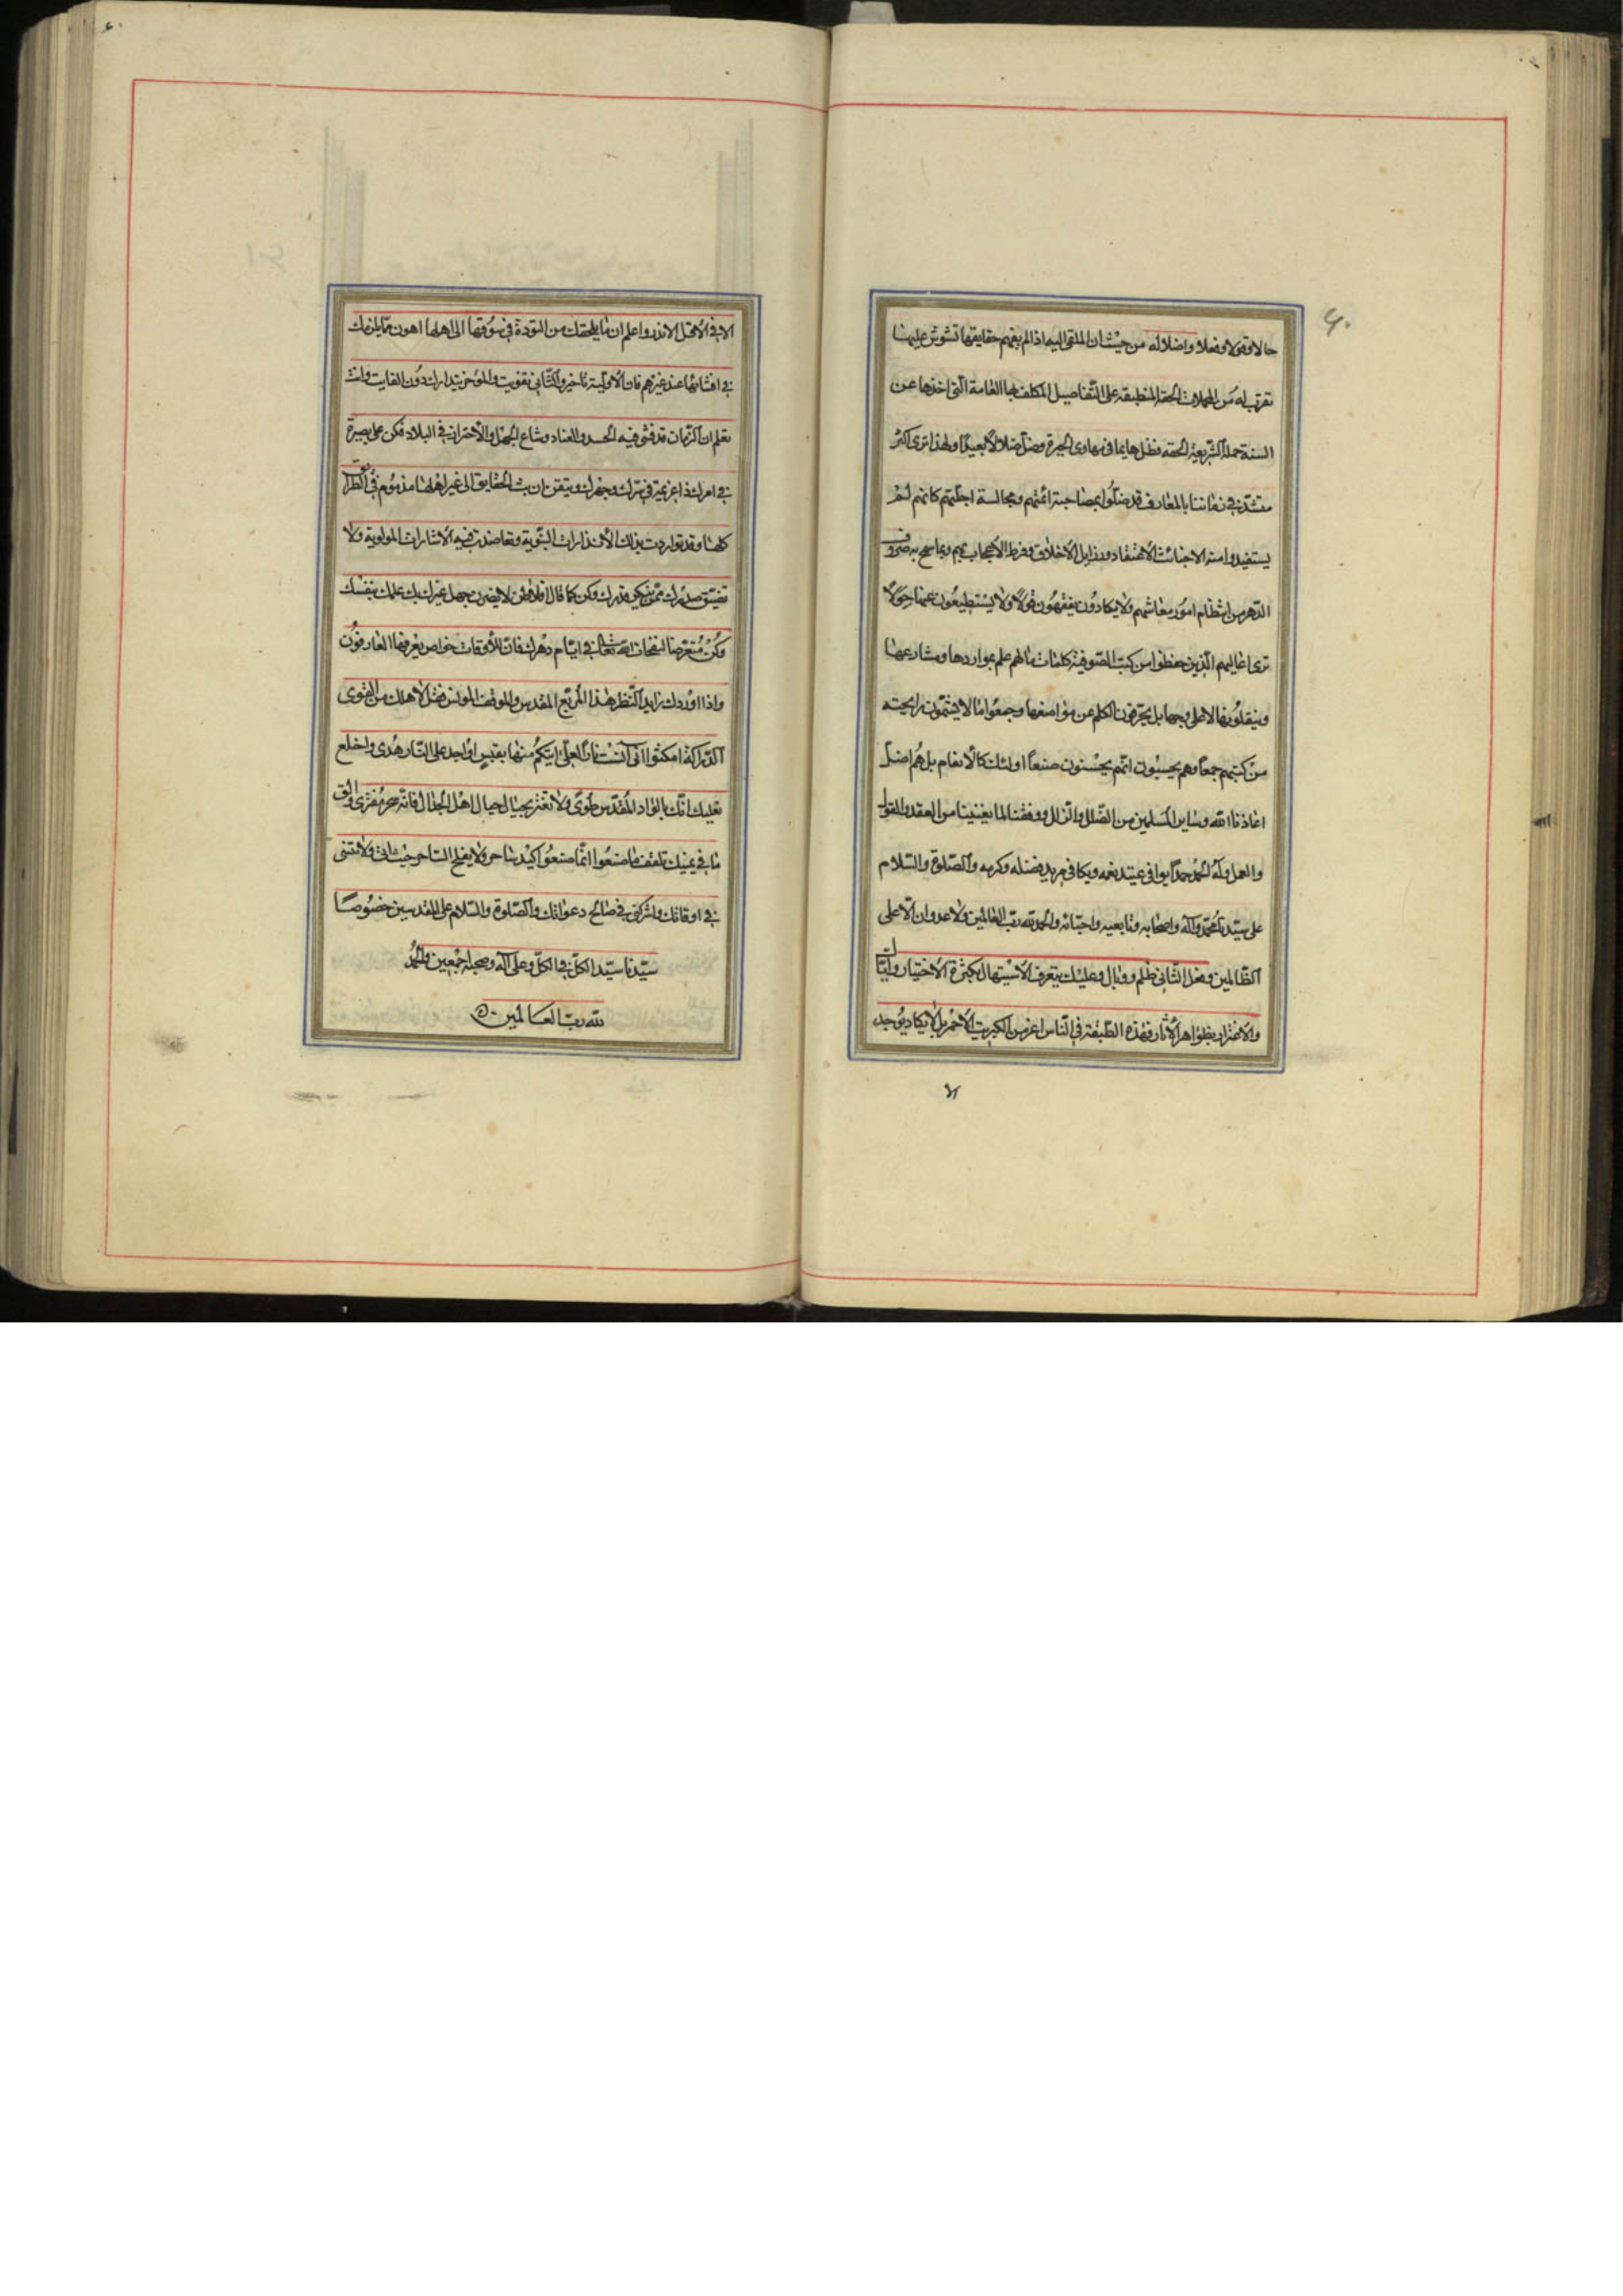 ۶۰
حالا وقولا وفعلا واضلاله من حيث ان الملقى اليه اذا لم يفهم حقايقها تشوش عليه ما
تقرب له من المجملات الحقة المنطبقة على التفاصيل المكلف بها العامة الّتى اخذها عن
السنة حملة الشّريعة الحقه فظل هايما فى مهاوى الحيرة وضل ضلالاً بعيدًا ولهذا ترى اكثر
متشدّقى زماننا بالمعارف قد ضلّوا بمصاحبة ائمتهم ومجالسة اجلّتهم كانهم لم
يستفيدوا منه الا خبائث الاعتقاد ورذايل الاخلاق وفرط الاعجاب بهم وبما سمح به صروف
الدّهر من انتظام امور معاشهم ولا يكادون يفقهون قولًا ولا يستطيعون عنها حِوَلًا
ترى اغاليهم الّذين حفظوا من كتب الصّوفيّة كلمات ما لهم علم بمواردها ومشارعها
وينقلونها لا على وجهها بل يحرّفون الكلم عن مواضعها وجمعوا ما لا يشمّون رايحته
من كتبهم جمعًا وهم يحسبون انّهم يحسنون صنعًا اولئك كالانعام بل هُم اضلّ
اعاذنا الله وساير المسلمين من الضّلل والزلل ووفقنا لما يعنينا من العقد والقول
والعمل وله الحمدُ حمدًا يوافى عتيد نعمه ويكافى مزيد فضله وكرمه والصّلوة والسّلام
على سيّدنا محمّد وآله واصحابه وتابعيه واحبّائه والحمد لله ربّ العالمين ولا عدوان الّا على
الظّالمين وفعل الثّانى ظلم ووبال وعليك بتعرف الاستيهال بكثرة الاختبار وايّاك
والاغترار بظواهر الاثار فهذه الطّبقة فى النّاس اعز من الكبريت الاحمر بل لا يكاد يُوجد
الا فى الاقل الاندر واعلم ان ما يلحقك من التؤدة فى سوقها الى اهلها اهون مّما يلزمك
فى افشائها عند غيرهم فان الاوّل يّة تاخير والثّانى تفويت والمؤخر يتدارك دُون الفايت وانت
تعلم ان الزمان قد فشى فيه الحسد والعناد وشاع الجهل والاحتراز فى البلاد فكن على بصيرة
فى امرك ذا عزيمة فى سرّك وجهرك وتيقن ان بث الحقايق الى غير اهلها مذموم فى الطرايق
كلها وقد تواردت بذلك الانذارات النّبوية وتعاضدت فيه الاشارات المولوية ولا
تضيّق صدرك ممّن ينكر قدرك وكن كما قال افلاطن لا يضرن جهل غيرك بك علمك بنفسك
وكُنْ مُتعرّضا لنفحات الله تعالى فى ايّام دهرك فانّ للأوقات خواص يعرفها العارفُون
واذا اوردك رايد النّظر هذا المربع المقدس والموقف المونس فقل لاهلك من القوى
الدّراكة امكثوا انّى آنَسْتُ نارًا لعلّى اتيكم منها بقبسٍ او اجد على النّار هُدى واخلع
نعليك انّك بالواد المُقدّس طُوىً ولا تغتر بحبال حيال اهل الجدال فانّه سحر مُفترى والق
ما فى يمينك تلقف ما صنعُوا انّما صنعُوا كيد ساحر ولا يفلح السّاحر حيث اتى ولا تنسنى
فى اوقاتك واشركنى فى صالح دعواتك والصّلوة والسّلام على المقدسين خصُوصًا
سيّدنا سيّد الكلّ فى الكلّ وعلى آله وصحبه اجمعين والحمد
لله ربّ العالمين